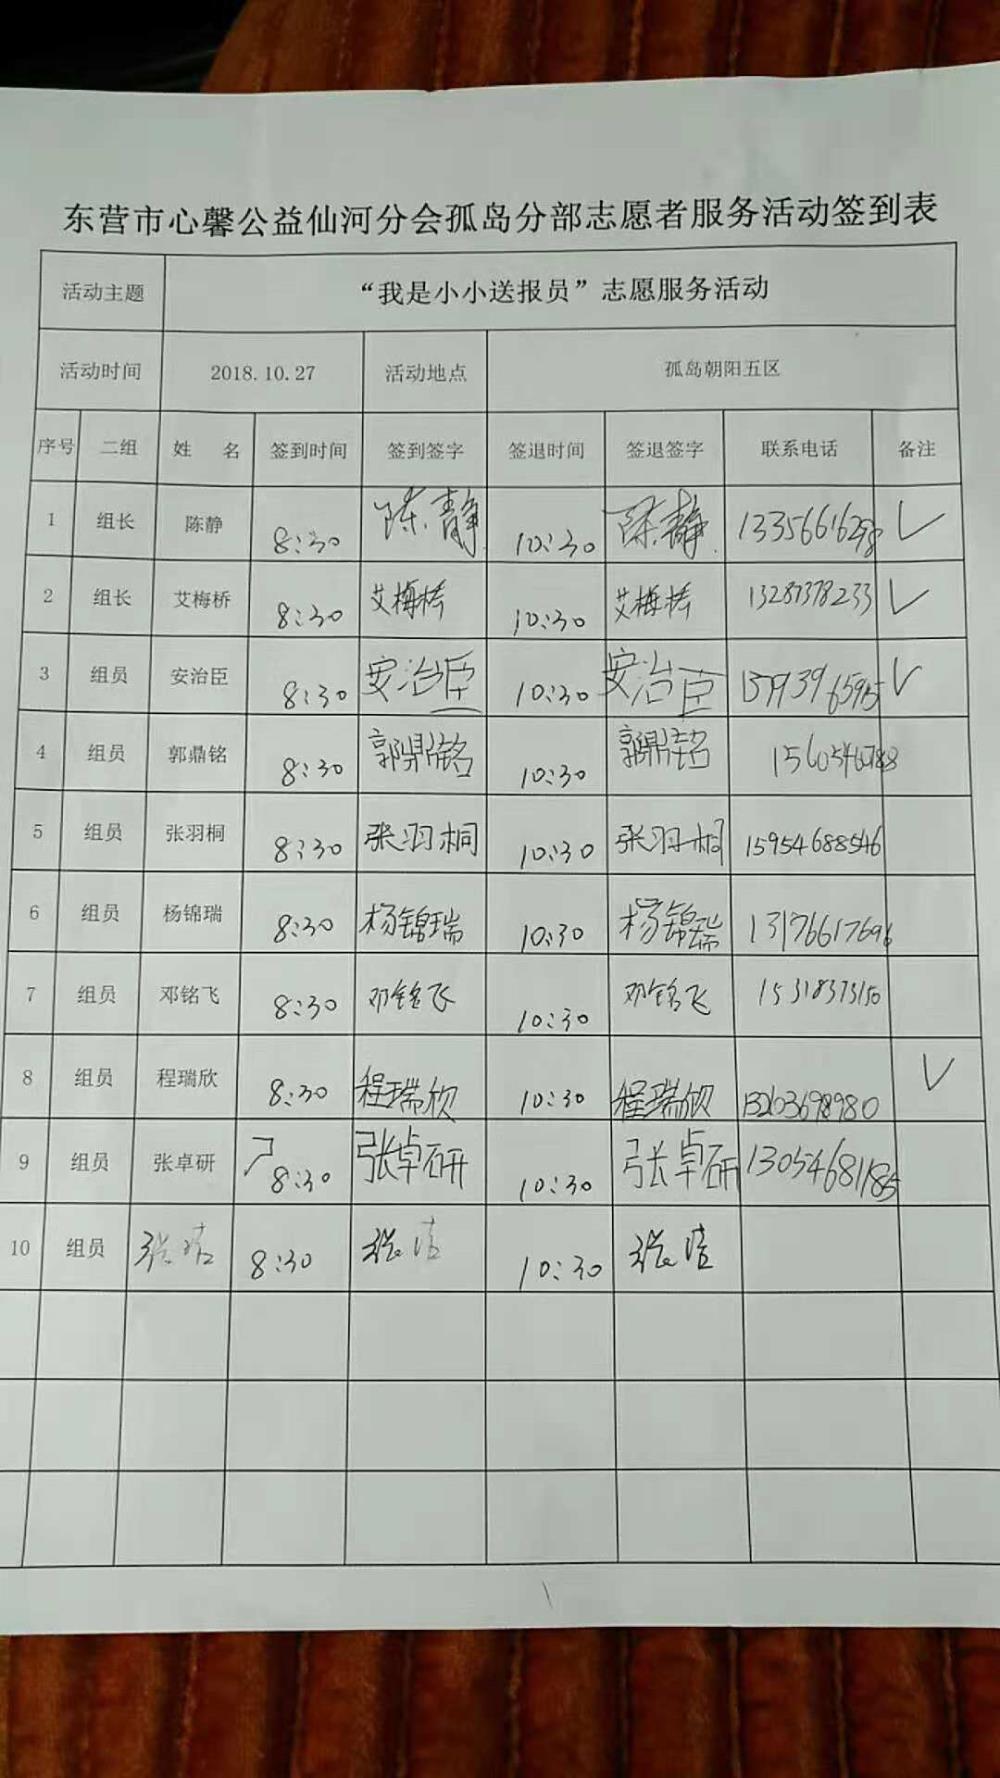 东营市心馨公益仙河分会孤岛分部志愿者服务活动签到表
活动主题 “我是小小送报员”志愿服务活动
活动时间 2018.10.27 活动地点 孤岛朝阳五区
序号 二组 姓 名 签到时间 签到签字 签退时间 签退签字 联系电话 备注
1 组长 陈静 8:30 陈静 10:30 陈静 ✓
2 组长 艾梅桥 8:30 艾梅桥 10:30 艾梅桥 13287378233 ✓
3 组员 安治臣 8:30 安治臣 10:30 安治臣 ✓
4 组员 郭鼎铭 8:30 郭鼎铭 10:30 郭鼎铭
5 组员 张羽桐 8:30 张羽桐 10:30 张羽桐 15954688546
6 组员 杨锦瑞 8:30 杨锦瑞 10:30 杨锦瑞 13176617696
7 组员 邓铭飞 8:30 邓铭飞 10:30 邓铭飞 15318373150
8 组员 程瑞欣 8:30 程瑞欣 10:30 程瑞欣 13203698980 ✓
9 组员 张卓研 8:30 张卓研 10:30 张卓研 13054681185
10 组员 8:30 10:30